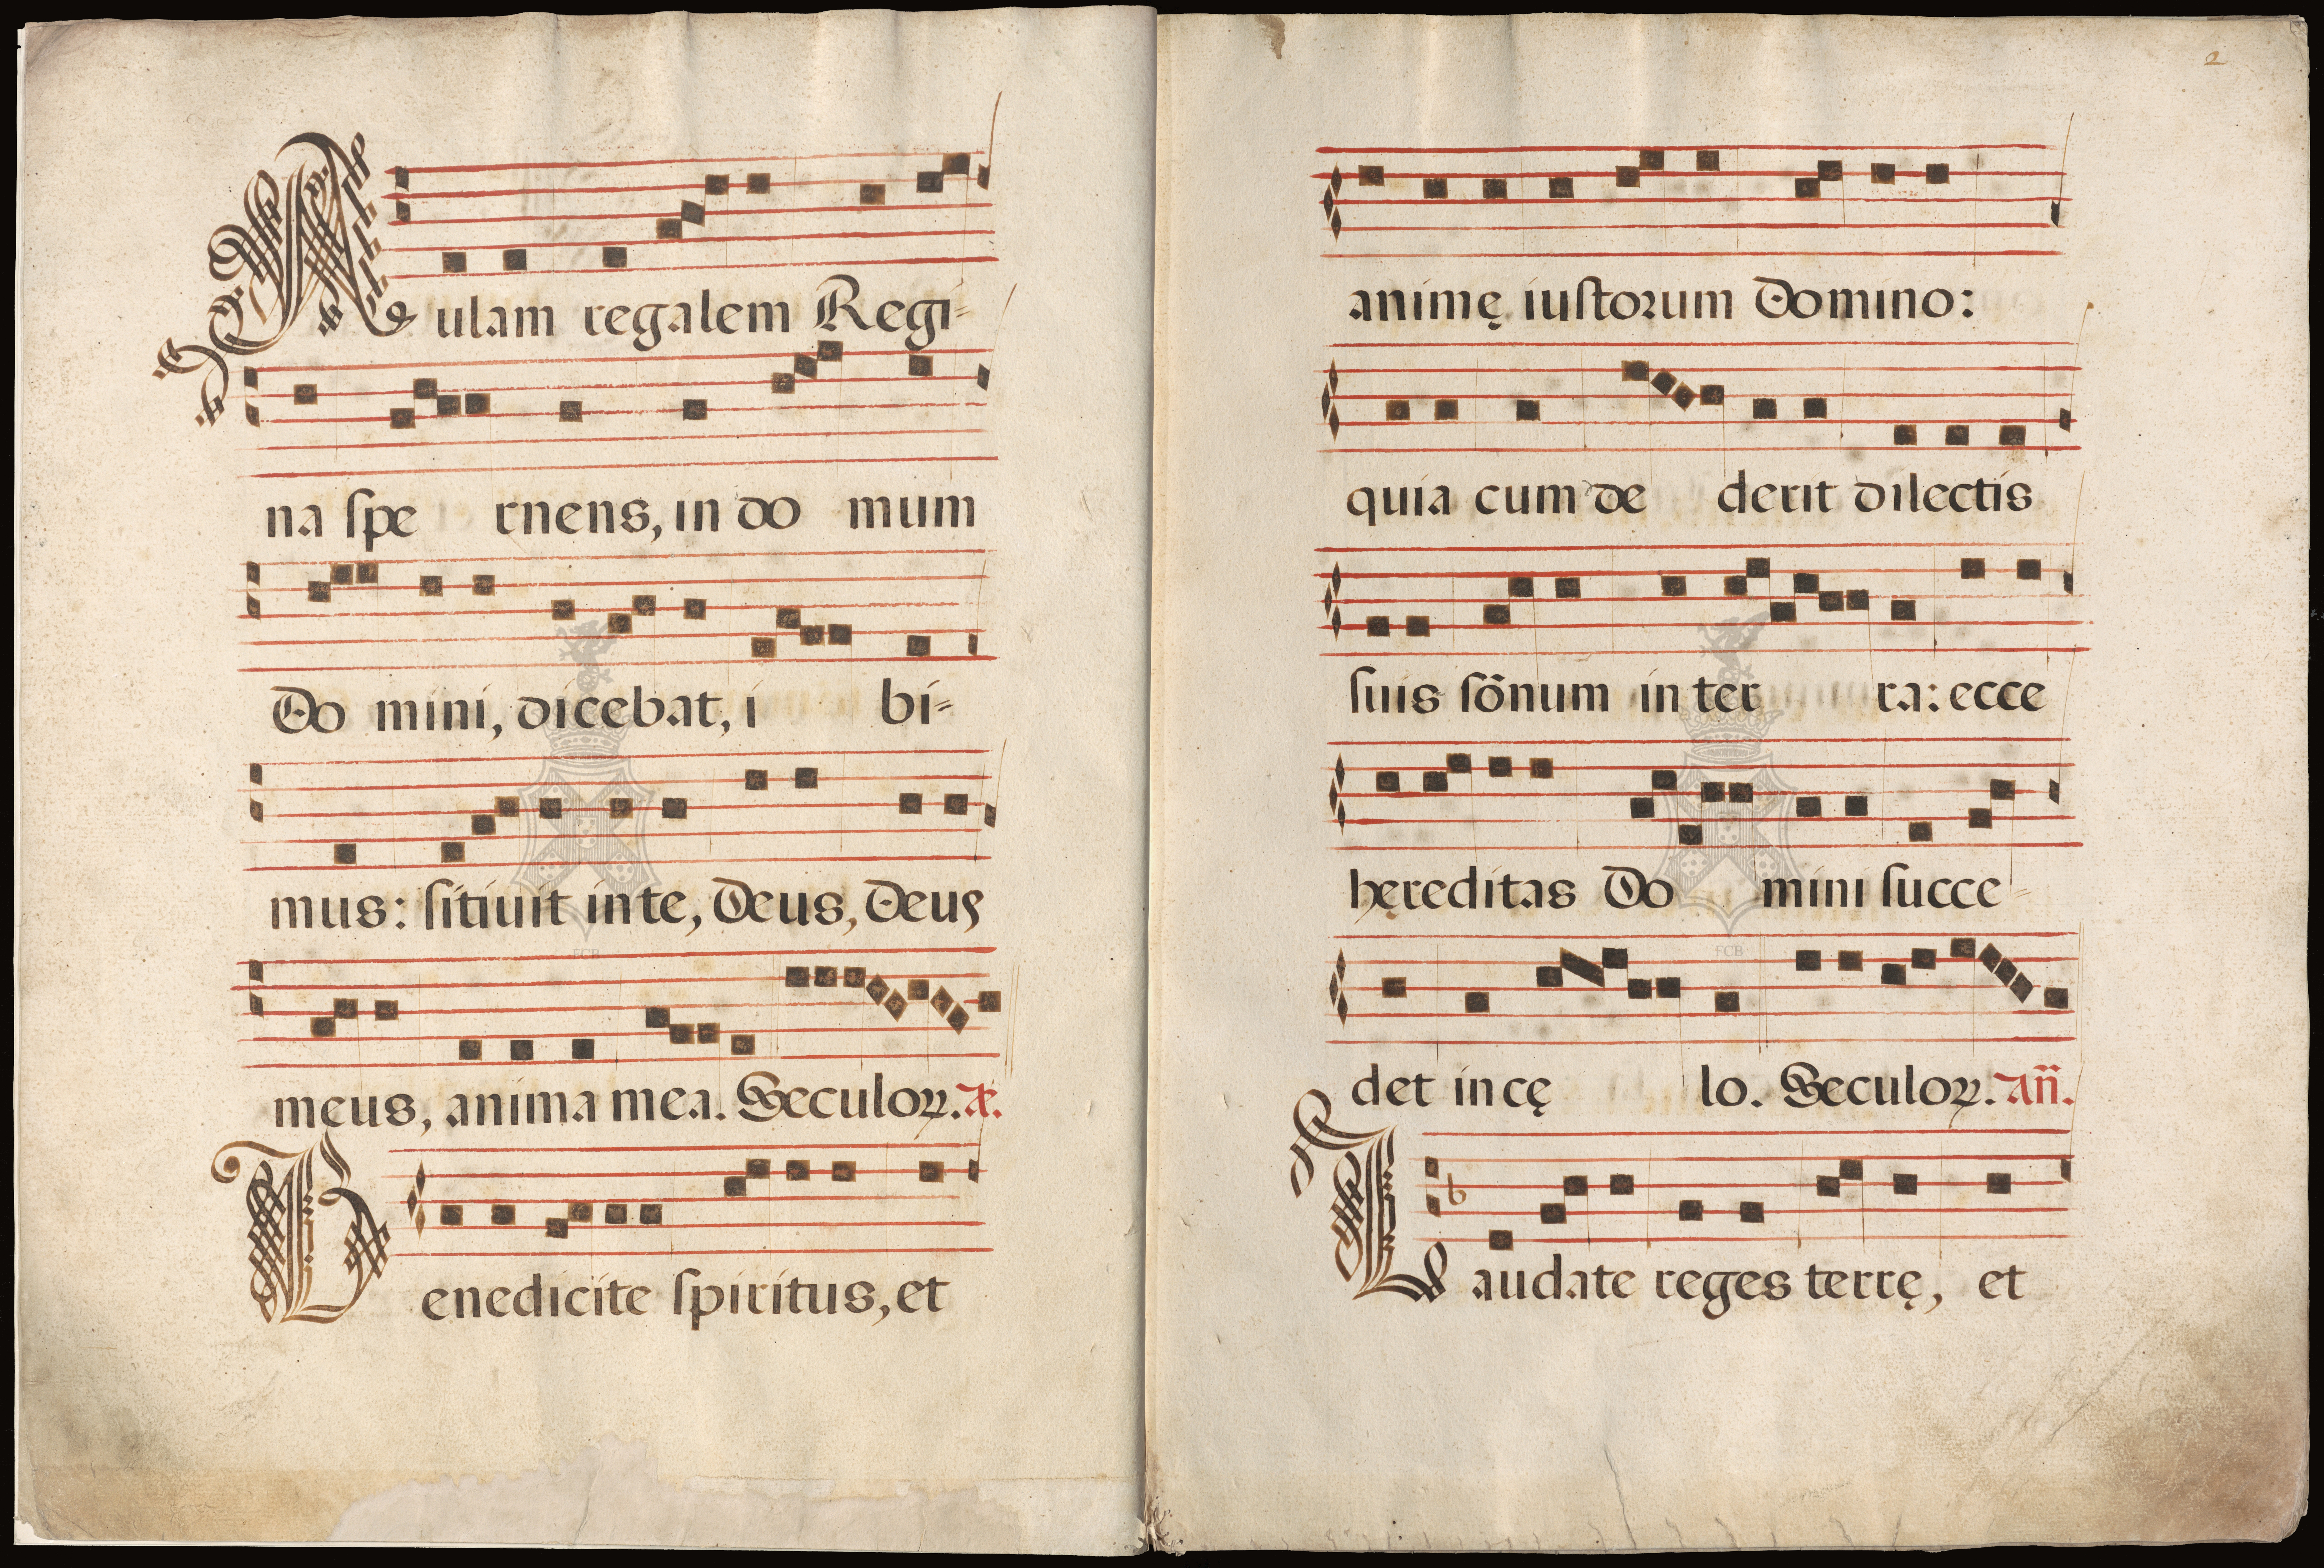 Aulam regalem Regi-
na ſpe rnens, in do mum
Do mini, dicebat, i bi-
mus: ſitiuit in te, Deus, Deus
meus, anima mea. Seculoꝝ. æ.
Benedicite ſpiritus, et
2
animę iuſtoꝛum Domino:
quia cum de derit dilectis
ſuis ſo᷈num in ter ra: ecce
hęreditas Do mini ſucce-
det in cę lo. Seculoꝝ. Añ.
Laudate reges terrę, et
FCB
FCB